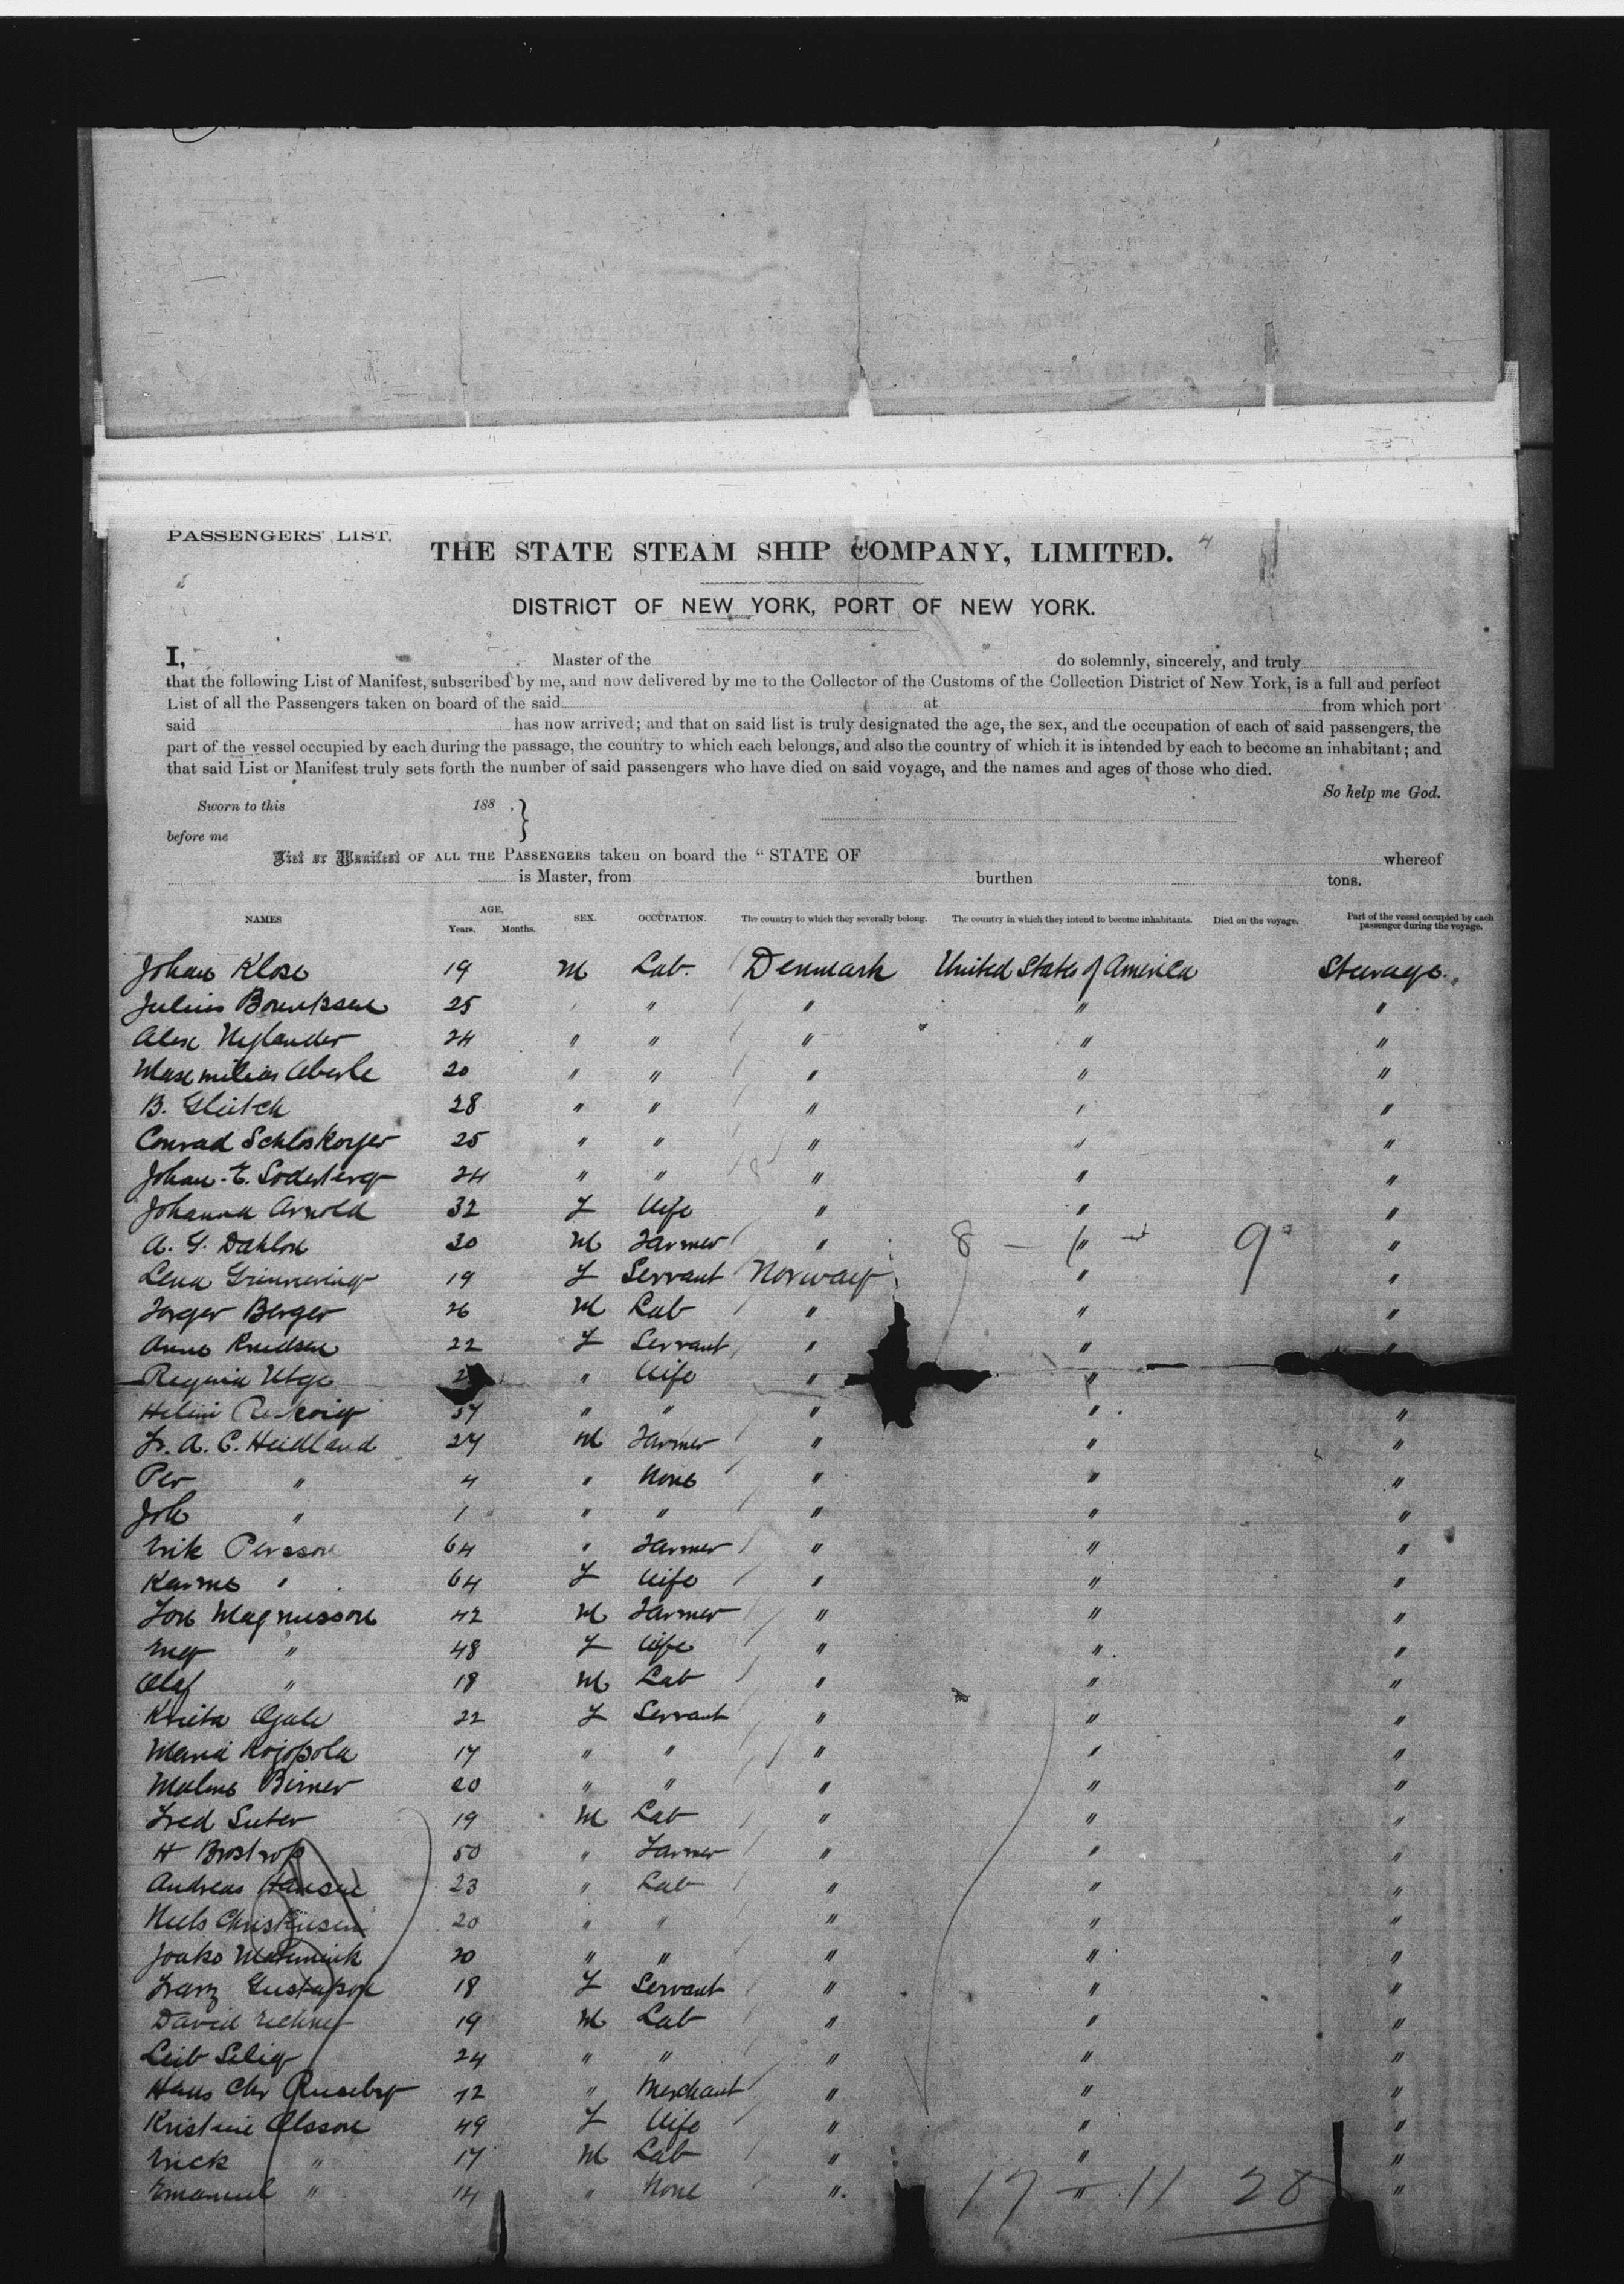 PASSENGERS' LIST.
THE STATE STEAM SHIP COMPANY, LIMITED. 4
DISTRICT OF NEW YORK, PORT OF NEW YORK.
I, Master of the do solemnly, sincerely, and truly
that the following List of Manifest, subscribed by me, and now delivered by me to the Collector of the Customs of the Collection District of New York, is a full and perfect
List of all the Passengers taken on board of the said at from which port
said has now arrived; and that on said list is truly designated the age, the sex, and the occupation of each of said passengers, the
part of the vessel occupied by each during the passage, the country to which each belongs, and also the country of which it is intended by each to become an inhabitant; and
that said List or Manifest truly sets forth the number of said passengers who have died on said voyage, and the names and ages of those who died.
So help me God.
Sworn to this 188 .}
before me
List or Manifest OF ALL THE PASSENGERS taken on board the "STATE OF whereof
is Master, from burthen tons.
NAMES AGE, Years. Months. SEX. OCCUPATION. The country to which they severally belong. The country in which they intend to become inhabitants. Died on the voyage. Part of the vessel occupied by each passenger during the voyage.
Johan Klose 19 M Lab. Denmark United State of America Steerage.
Julius 25 " " " "
Alex Nylander 24 " " " " "
Maxemilian Aberle 20 " " " " "
B. Gleitch 28 " " " " "
Conrad 25 " " " " "
Johan. E. Soderberg 24 " " " " "
Johanna Arnold 32 F Wife " " "
A. G. Dahlon 30 M Farmer " 8 - " 9 "
Lena 19 F Servant Norway " "
Torger Berger 26 M Lab " " "
Anne Knudsen 22 F Servant " " "
Regina Utge " Wife " "
Helini " " " " "
A. C. Heidland 27 M Farmer " " "
Per " 4 " None " " "
Joh " 1 " " " " "
Erik Persson 64 " Farmer " " "
Karine " 64 F Wife " " "
Jon Magnusson 42 M Farmer " " "
Ing " 48 F Wife " " "
Olaf " 18 M Lab " " "
Ojala 22 F Servant " " "
Maria Kojopola 17 " " " " "
Malme Birner 20 " " " " "
Fred Suter 19 M Lab " " "
H Brostrop 50 " Farmer " " "
Andreas Hansen 23 " Lab " " "
Niels Christiansen 20 " " " " "
Joako 20 " " " " "
Franz Gustafson 18 F Servant " " "
David 19 M Lab " " "
Leib Selig 24 " " " " "
Hans Chr 42 " Merchant " " "
Kristine Olsson 49 F Wife " " "
Erick " 17 M Lab " " "
Emanuel " 14 " None " 17 - " 11 28 "